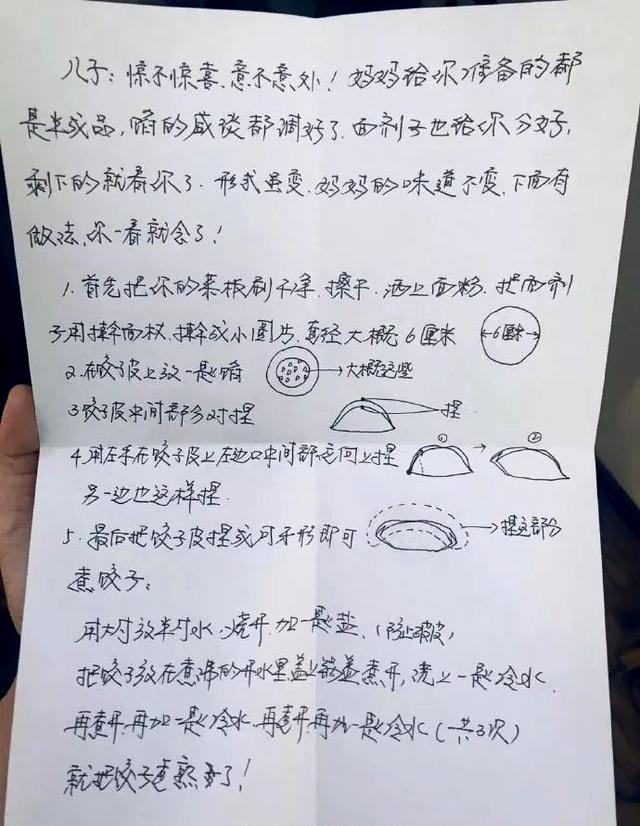 儿子：惊不惊喜、意不意外！妈妈给你准备的都
是半成品，馅的咸淡都调好了、面剂子也给你分好，
剩下的就看你了、形式虽变、妈妈的味道不变、下面有
做法、你一看就会了！
1、首先把你的菜板刷干净、擦干、洒上面粉、把面剂
子用擀面杖、擀成小圆片、直径大概6厘米
6厘米
2、在饺子皮上放一匙馅
大概这些
3、饺子皮中间部分对捏
捏
4、用左手在饺子皮上左边口中间部完向上捏
① ②
另一边也这样捏、
5、最后把饺子皮捏成月牙形即可
捏这部分
煮饺子：
用大锅放半锅水、烧开、加一匙盐、（防止破皮）
把饺子放在煮沸的开水里盖上锅盖煮开，浇上一匙冷水、
再煮开、再加一匙冷水、再煮开、再加一匙冷水（一共3次）
就把饺子煮熟了！